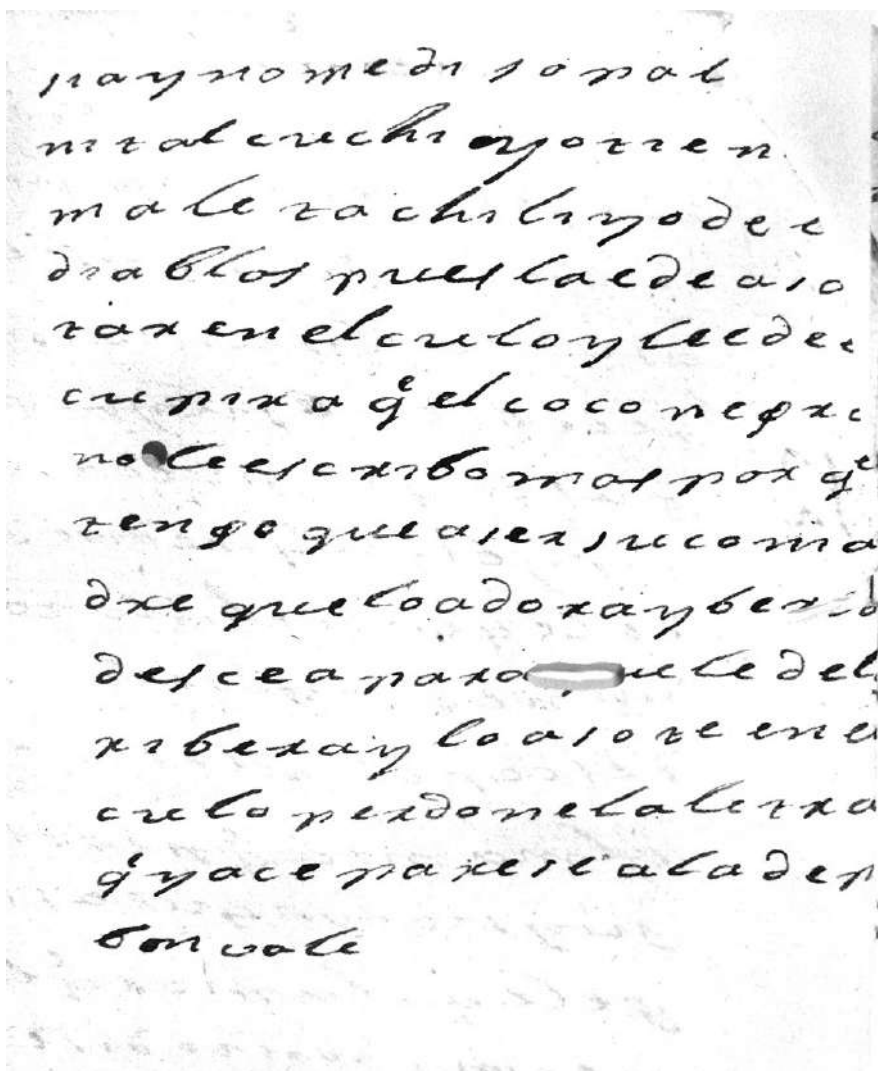 siay nome di so pal
ni tal cuchi ayo tien
male ta chiliyo de e
diablos pues la e de aso
tar en el culo y le e de e
cupir a qe el coco negri
no le escribo mas por qe
tengo que aser su coma
dre que lo adora y ber
desea para que le de l
ribera y lo asote en e
culo perdone la letra
qe ya ce parese a la de p
bon vale